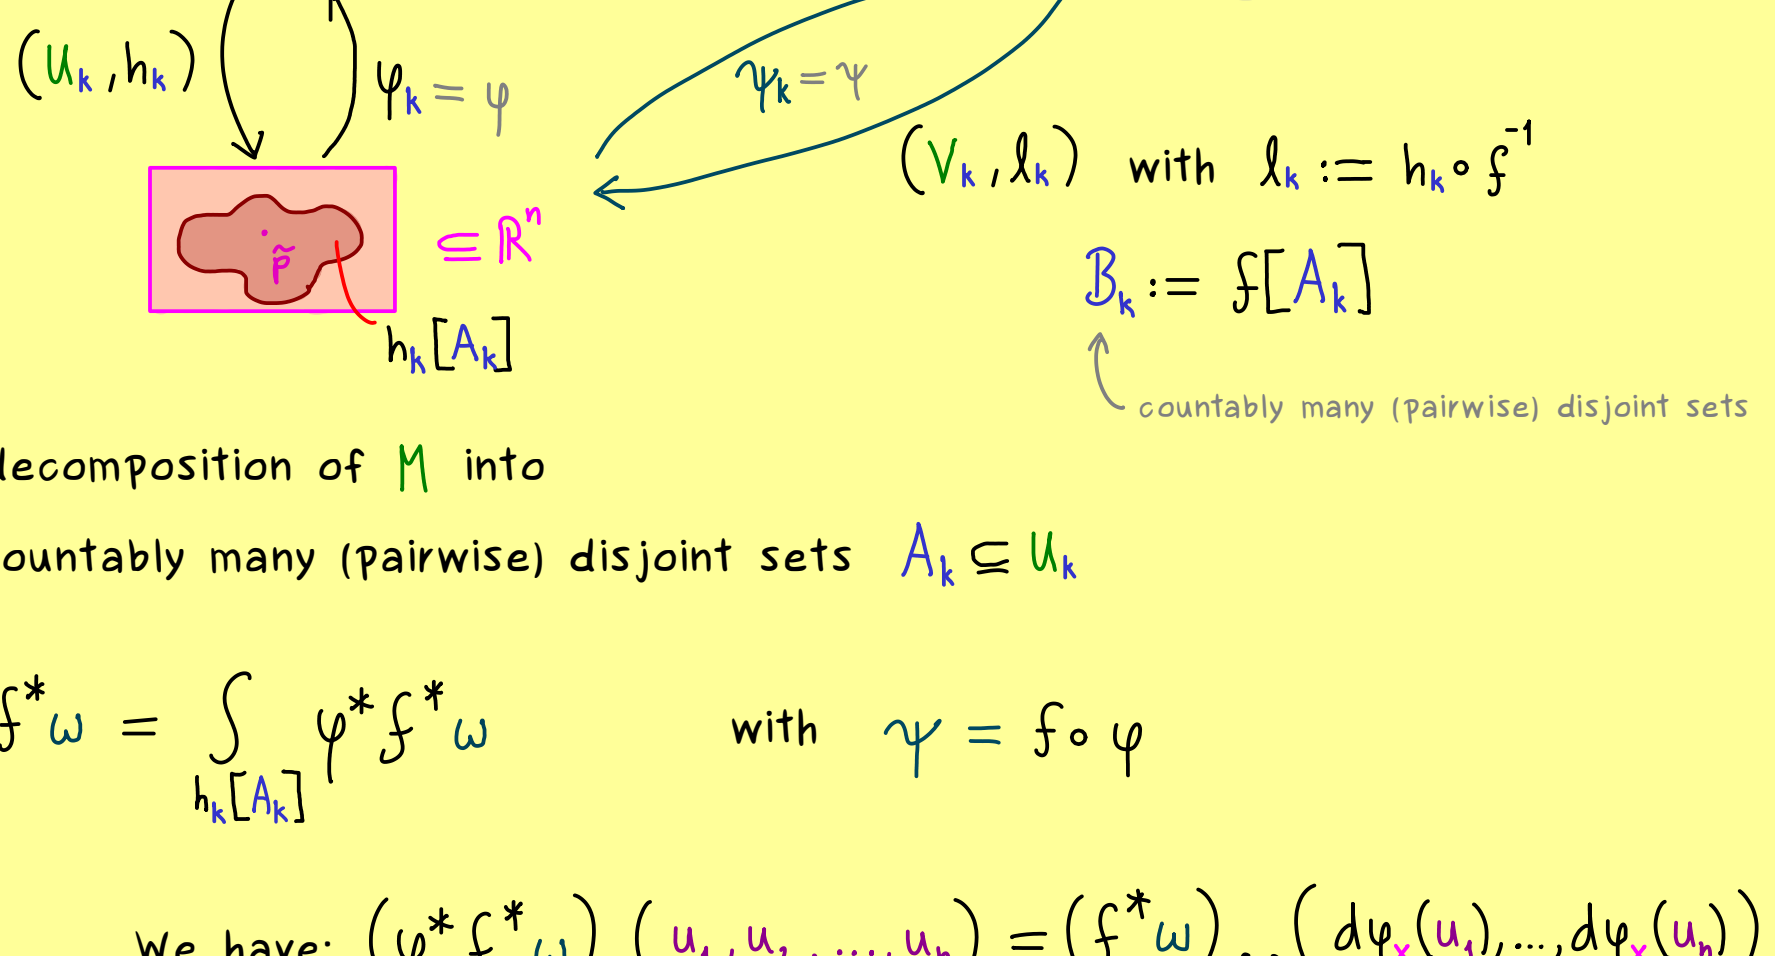 (U_k, h_k)
φ_k = φ
ψ_k = ψ
(V_k, l_k) with l_k := h_k ∘ f^{-1}
p̃
⊆ ℝ^n
B_k := f[A_k]
h_k[A_k]
countably many (pairwise) disjoint sets
decomposition of M into
ountably many (pairwise) disjoint sets A_k ⊆ U_k
f^*ω = ∫_{h_k[A_k]} φ^* f^* ω with ψ = f ∘ φ
We have: (φ^* f^* ω) (u_1, u_2, ..., u_n) = (f^* ω) (dφ_x(u_1), ..., dφ_x(u_n))